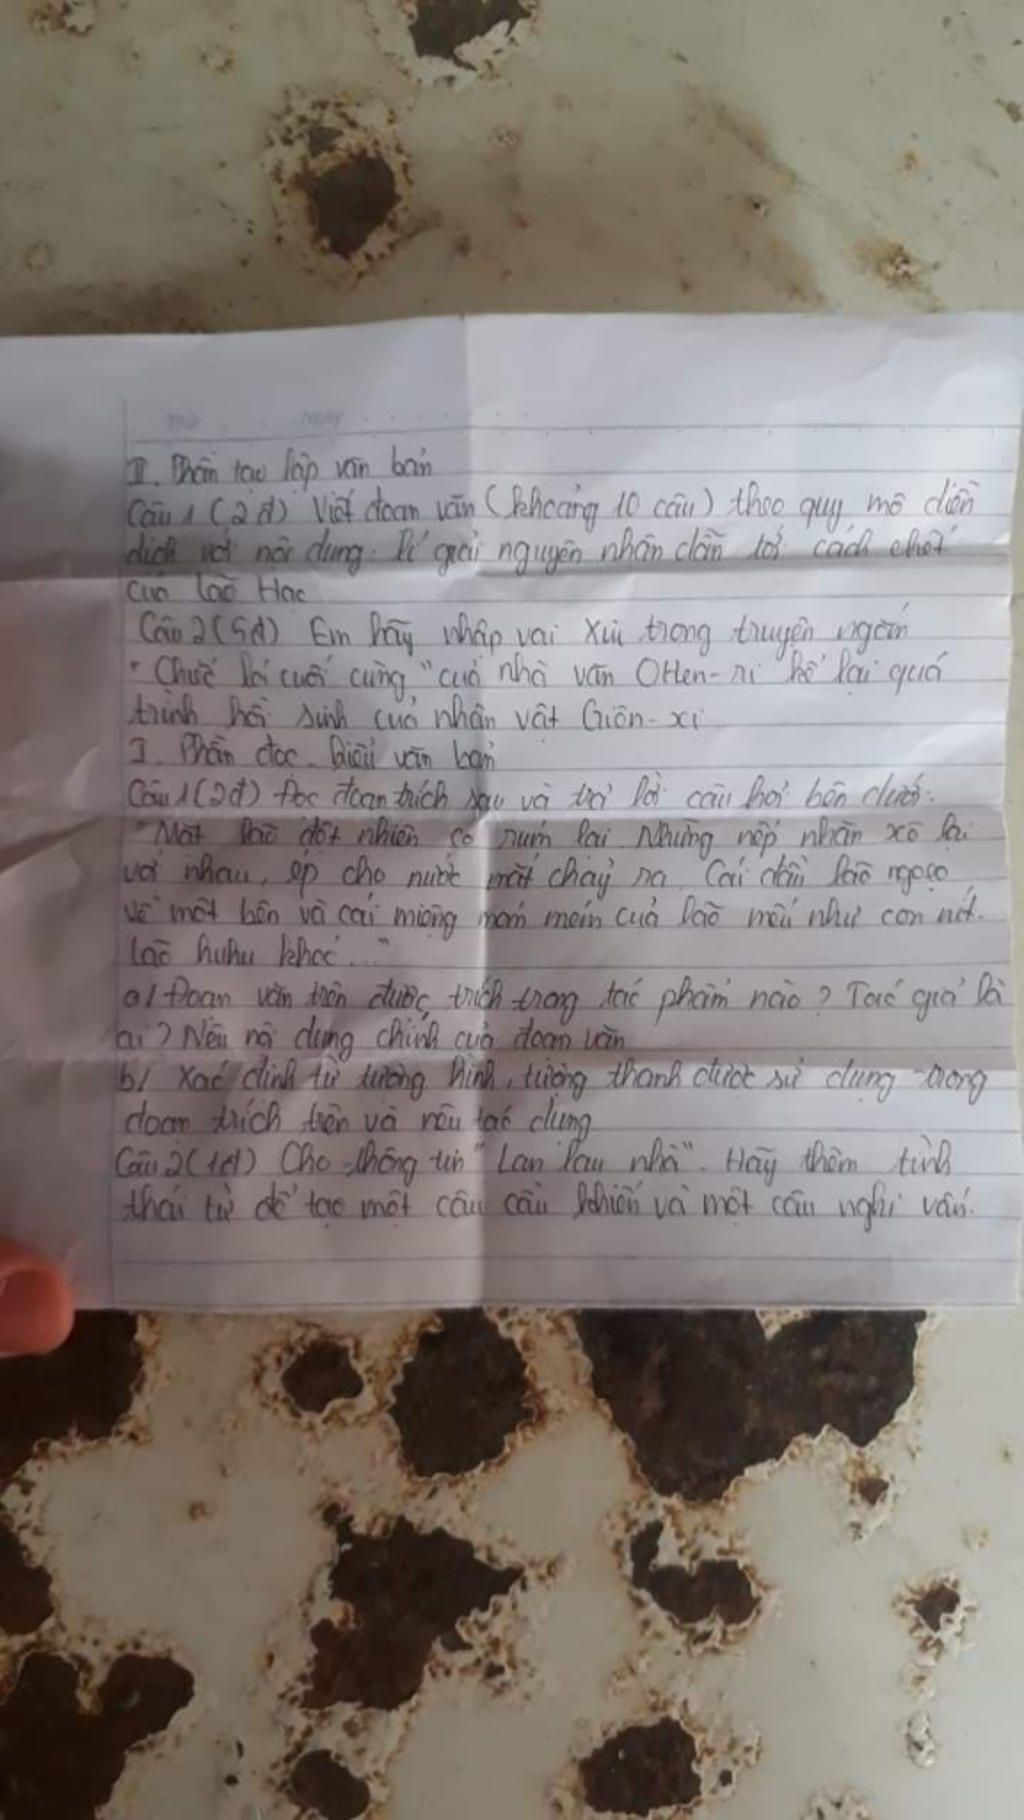 Thứ Ngày
II. Phần tạo lập văn bản
Câu 1 (2đ) Viết đoạn văn (khoảng 10 câu) theo quy mô diễn
dịch với nội dung: lí giải nguyên nhân dẫn tới cách chết
của lão Hạc
Câu 2 (5đ) Em hãy nhập vai Xiu trong truyện ngắn
"Chiếc lá cuối cùng" của nhà văn OHen-ri kể lại quá
trình hồi sinh của nhân vật Giôn-xi
I. Phần đọc hiểu văn bản
Câu 1 (2đ) Đọc đoạn trích sau và trả lời câu hỏi bên dưới.
"Mặt lão đột nhiên co rúm lại. Những nếp nhăn xô lại
với nhau, ép cho nước mắt chảy ra. Cái đầu lão ngoẹo
về một bên và cái miệng móm mém của lão mếu như con nít.
Lão huhu khóc..."
a/ Đoạn văn trên được trích trong tác phẩm nào? Tác giả là
ai? Nêu nội dung chính của đoạn văn
b/ Xác định từ tượng hình, tượng thanh được sử dụng trong
đoạn trích trên và nêu tác dụng
Câu 2 (1đ) Cho thông tin "Lan lau nhà". Hãy thêm tình
thái từ để tạo một câu cầu khiến và một câu nghi vấn.